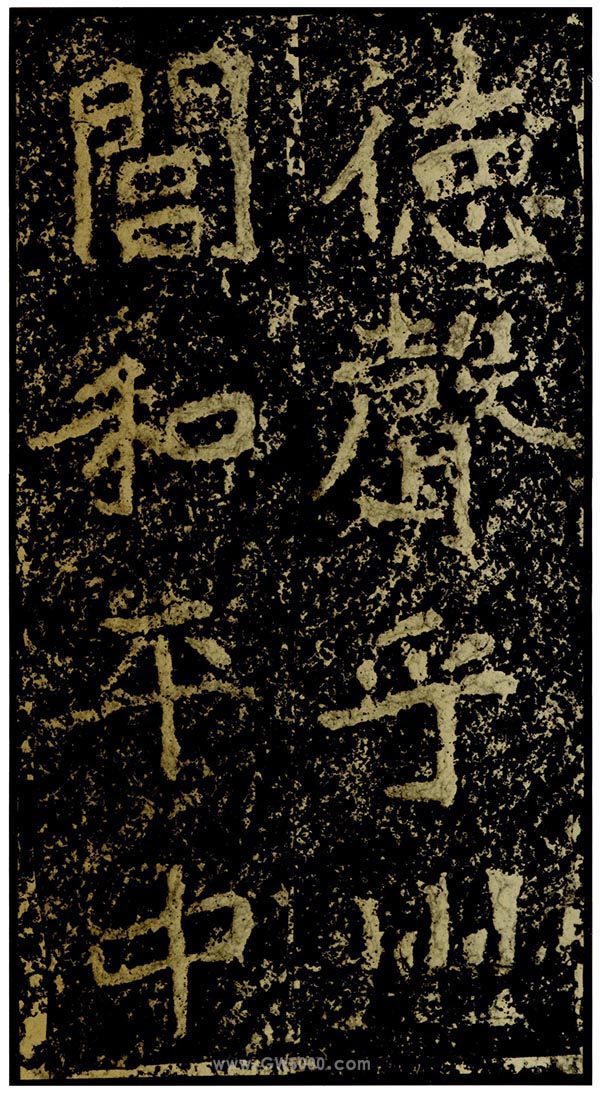 德聲乎州
閭和平中
www.GW5000.com